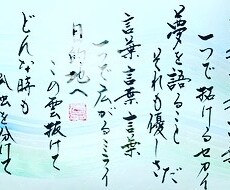 一つで拓けるセカイ
夢を語ること
それも優しさだ
言葉言葉言葉
一つで広がるミライ
目的地へ
この雲抜けて
どんな時も
を分けて